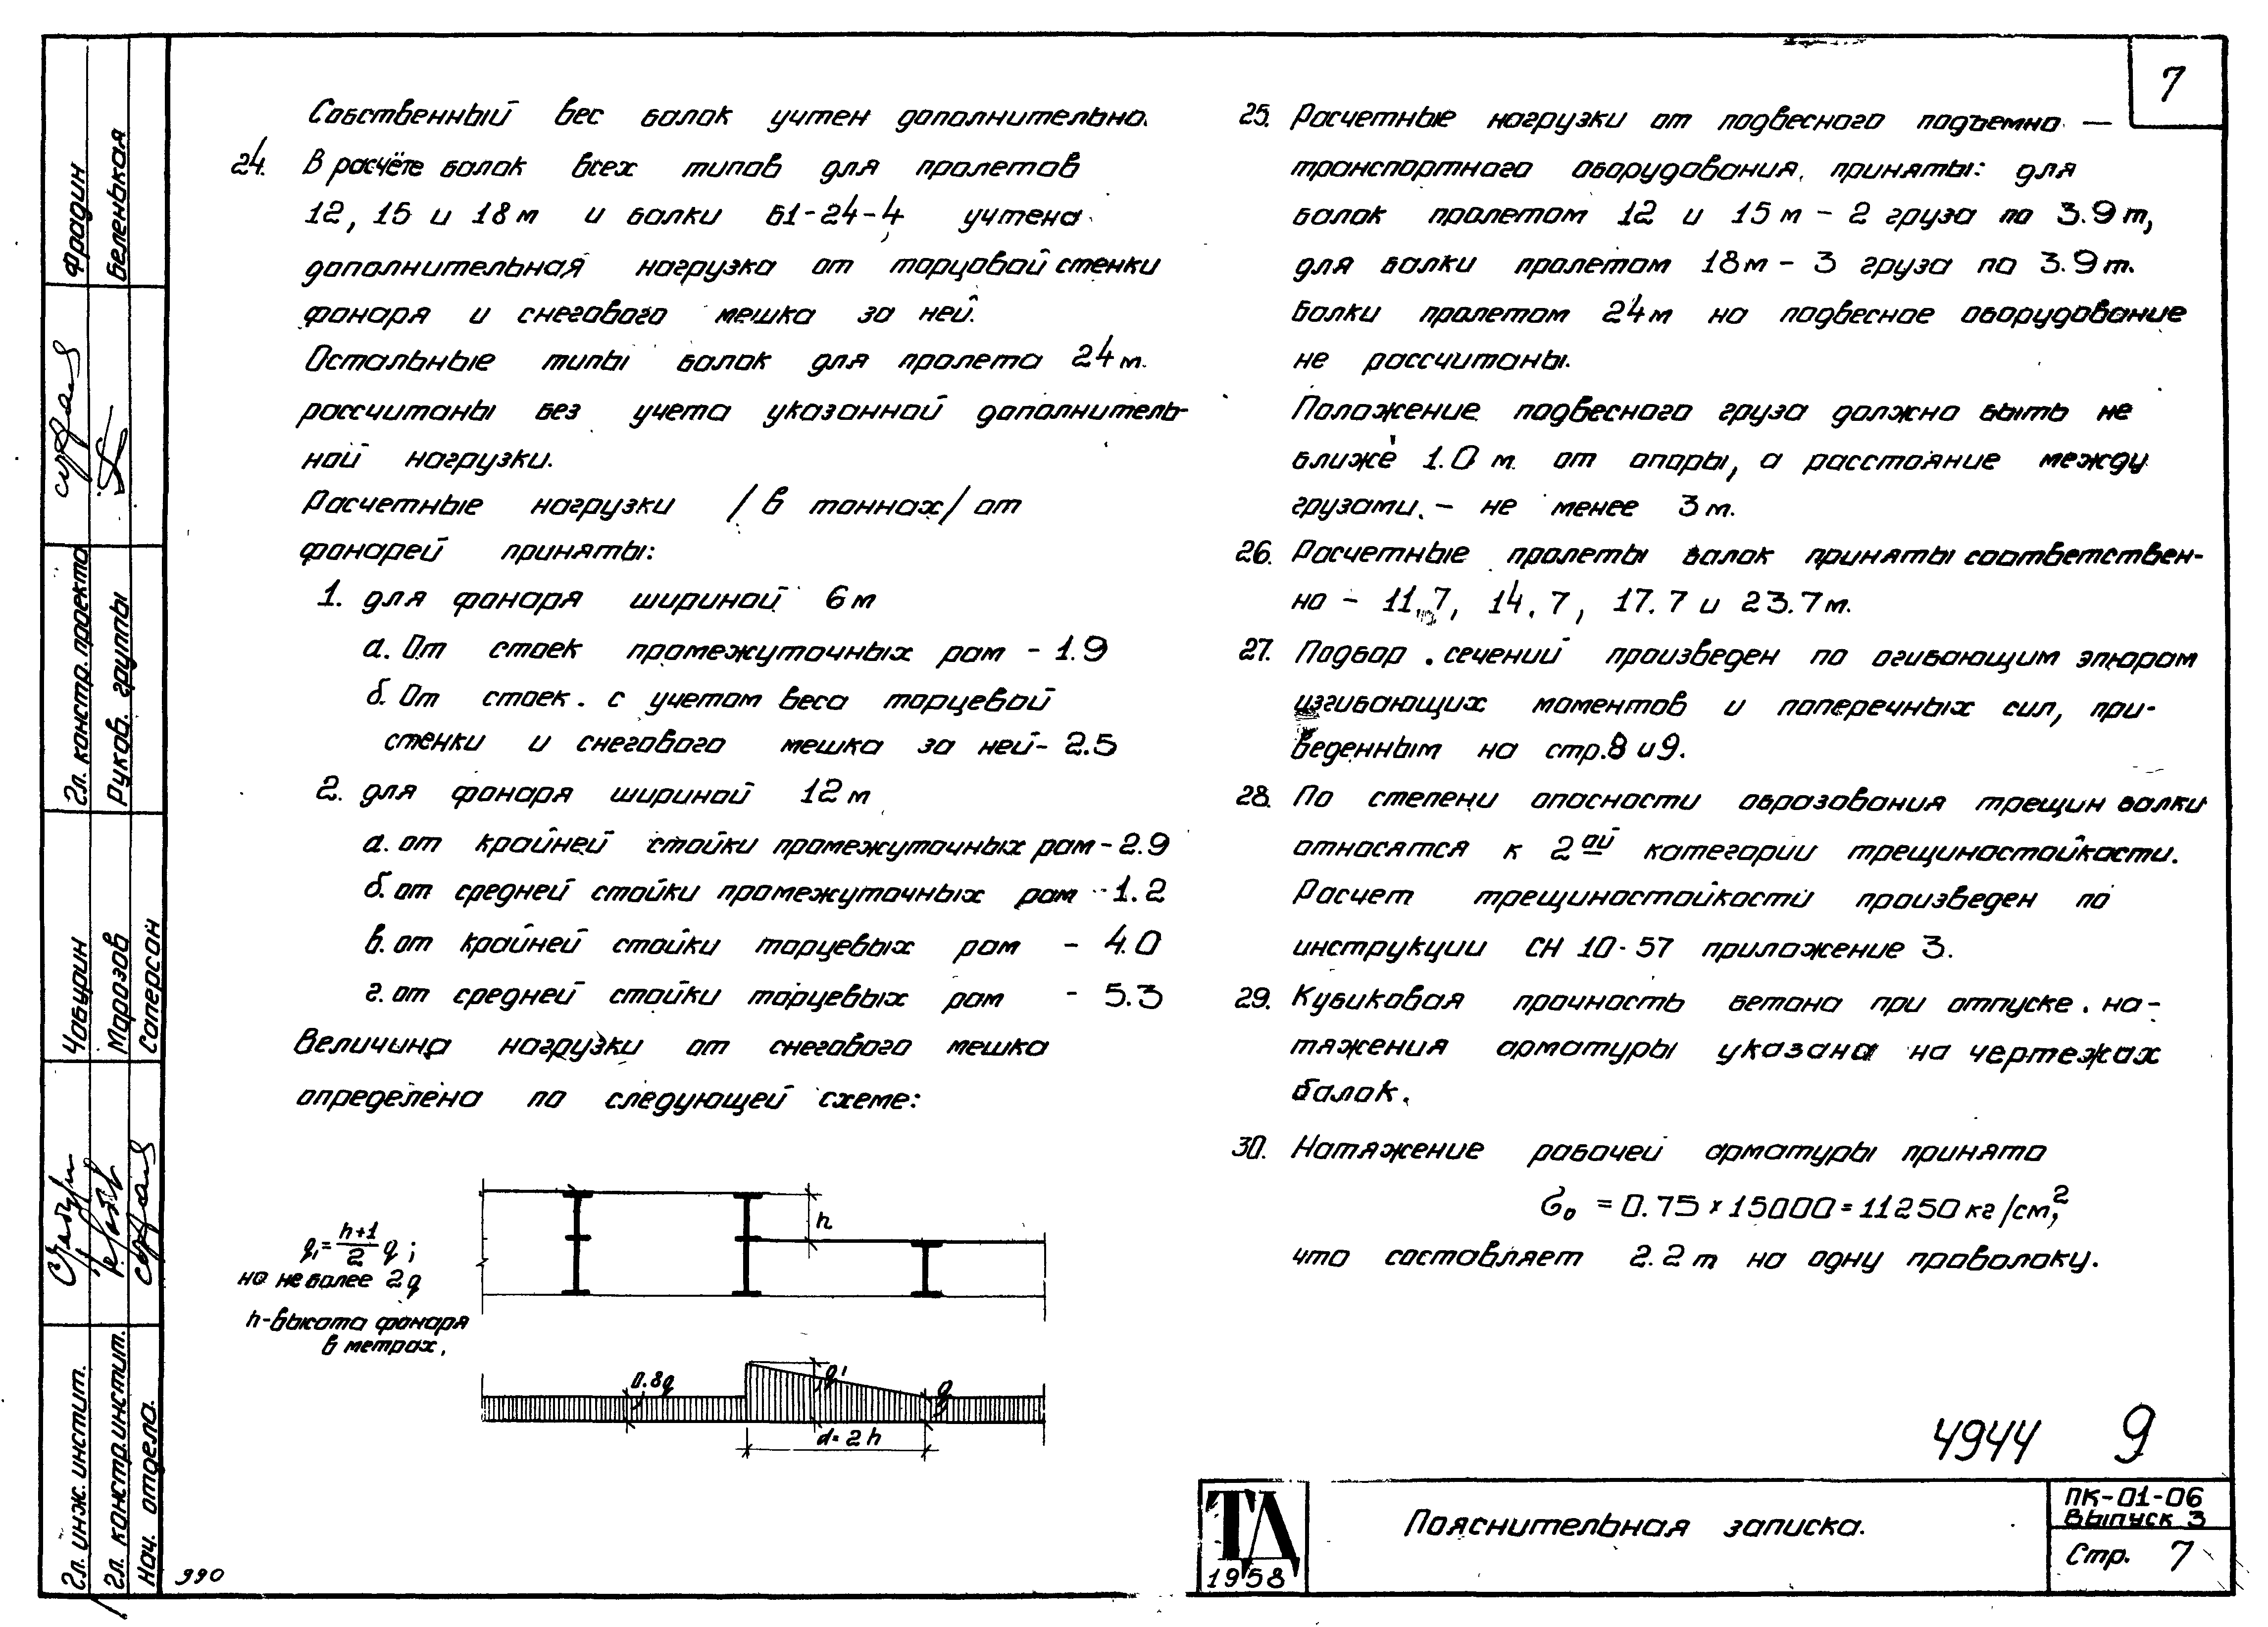 7
Собственный вес балок учтен дополнительно.
24. В расчёте балок всех типов для пролетов
12, 15 и 18 м и балки Б1-24-4 учтена
дополнительная нагрузка от торцовой стенки
фонаря и снегового мешка за ней.
Остальные типы балок для пролета 24 м.
рассчитаны без учета указанной дополнитель-
ной нагрузки.
Расчетные нагрузки /в тоннах/ от
фонарей приняты:
1. для фонаря шириной 6 м
а. От стоек промежуточных рам - 1.9
б. От стоек. с учетом веса торцевой
стенки и снегового мешка за ней - 2.5
2. для фонаря шириной 12 м
а. от крайней стойки промежуточных рам - 2.9
б. от средней стойки промежуточных рам - 1.2
в. от крайней стойки торцевых рам - 4.0
г. от средней стойки торцевых рам - 5.3
Величина нагрузки от снегового мешка
определена по следующей схеме:
q₁ = h+1/2 q ;
но не более 2q
h - высота фонаря
в метрах.
h
0.8q
q'
q
d = 2h
25. Расчетные нагрузки от подвесного подъемно —
транспортного оборудования. приняты: для
балок пролетом 12 и 15 м - 2 груза по 3.9 т,
для балки пролетом 18 м - 3 груза по 3.9 т.
Балки пролетом 24 м на подвесное оборудование
не рассчитаны.
Положение подвесного груза должно быть не
ближе 1.0 м. от опоры, а расстояние между
грузами. - не менее 3 м.
26. Расчетные пролеты балок приняты соответствен-
но - 11.7, 14.7, 17.7 и 23.7 м.
27. Подбор. сечений произведен по огибающим эпюрам
изгибающих моментов и поперечных сил, при-
веденным на стр. 8 и 9.
28. По степени опасности образования трещин балки
относятся к 2ой категории трещиностойкости.
Расчет трещиностойкости произведен по
инструкции СН 10-57 приложение 3.
29. Кубиковая прочность бетона при отпуске. на-
тяжения арматуры указана на чертежах
балок.
30. Натяжение рабочей арматуры принято
σ₀ = 0.75 х 15000 = 11250 кг/см²,
что составляет 2.2 т на одну проволоку.
4944 9
ТД
1958
Пояснительная записка.
ПК-01-06
Выпуск 3
Стр. 7
Гл. инж. инстит.
Гл. констр. инстит.
Нач. отдела.
Чабурин
Морозов
Саперсон
Гл. констр. проекта
Руков. группы
Фрадин
Беленькая
990